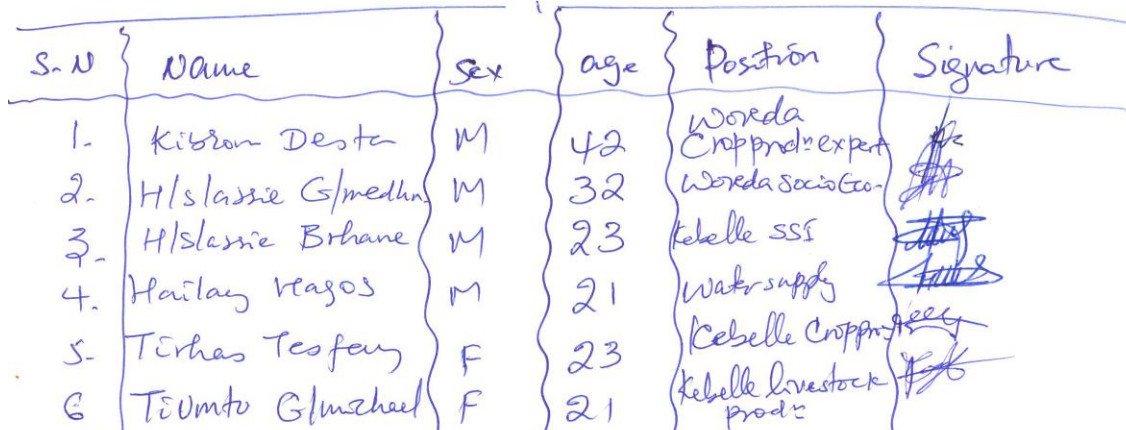 S.N Name Sex age Position Signature
1. Kibrom Desta M 42 Woreda Crop prodn expert
2. H/slassie G/medhn M 32 Woreda Socio Eco.
3. H/Slassie Brhane M 23 Kebelle SSI
4. Hailay Hagos M 21 Water supply
5. Tirhas Tesfay F 23 Kebelle Crop
6 G/michael F 21 Kebelle livestock prodn